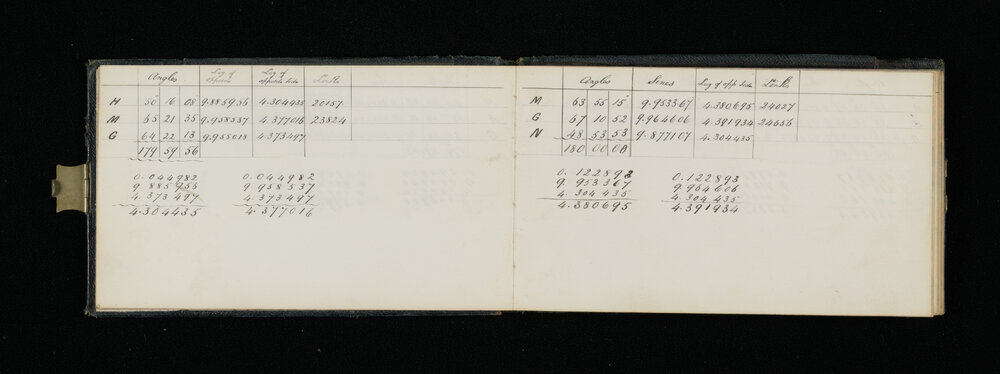 Angles Log of Log of opposite side Links
H 50° 16' 08" 9.885956 4.304435 20157
M 65 21 35 9.958537 4.377016 23824
G 64 22 13 9.955018 4.373497
179 59 56
0.044982 0.044982
9.885956 9.958537
4.373497 4.373497
4.304435 4.377016
Angles Sines Log of opp side Links
M 63° 55' 15" 9.953367 4.380695 24027
G 67 10 52 9.964606 4.391934 24656
N 48 53 53 9.877107 4.304435
180 00 00
0.122893 0.122893
9.953367 9.964606
4.304435 4.304435
4.380695 4.391934